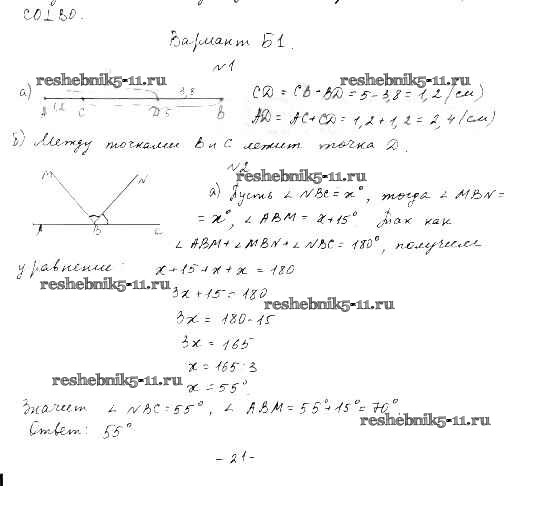 CO⊥BO.
Вариант Б1.
№1
reshebnik5-11.ru reshebnik5-11.ru
а) A 1,2 C D 5 3,8 B CD = CB - BD = 5 - 3,8 = 1,2 (см)
AD = AC + CD = 1,2 + 1,2 = 2,4 (см)
б) Между точками B и C лежит точка D.
№2
reshebnik5-11.ru
M N A B C
а) Пусть ∠NBC = x°, тогда ∠MBN =
= x°, ∠ABM = x + 15°. Так как
∠ABM + ∠MBN + ∠NBC = 180°, получим
уравнение: x + 15 + x + x = 180
reshebnik5-11.ru
3x + 15 = 180
reshebnik5-11.ru
3x = 180 - 15
3x = 165
x = 165 : 3
reshebnik5-11.ru
x = 55°.
Значит ∠NBC = 55°, ∠ABM = 55° + 15° = 70°.
reshebnik5-11.ru
Ответ: 55°
- 21 -